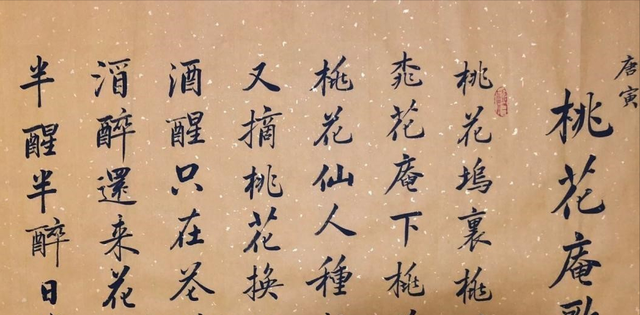 唐寅
桃花庵歌
桃花塢裏桃
桃花庵下桃
桃花仙人種
又摘桃花換
酒醒只在花
酒醉還來花
半醒半醉日